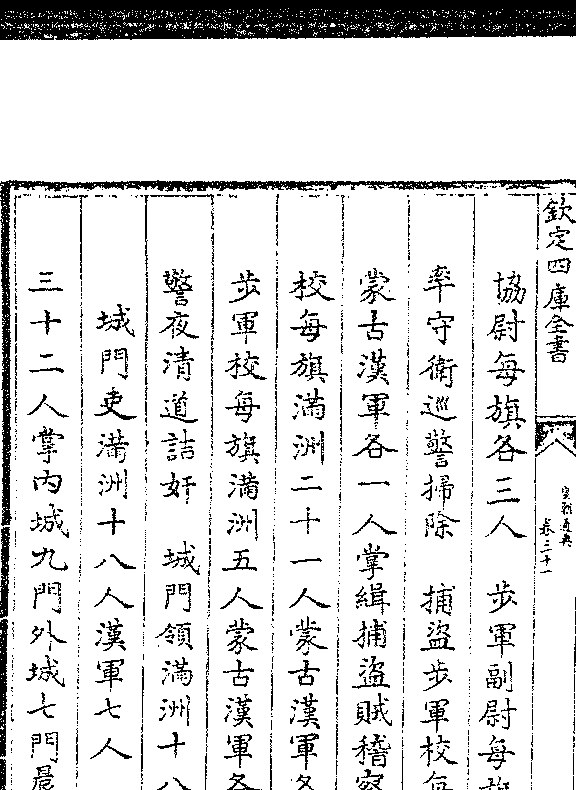 欽定四庫全書
皇朝通典
卷三十一
協尉每旗各三人　步軍副尉每旗
率守衛巡警掃除　捕盜步軍校每
蒙古漢軍各一人掌緝捕盜賊稽察
校每旗滿洲二十一人蒙古漢軍各
步軍校每旗滿洲五人蒙古漢軍各
警夜清道詰奸　城門領滿洲十八
城門吏滿洲十八人漢軍七人
三十二人掌內城九門外城七門晨